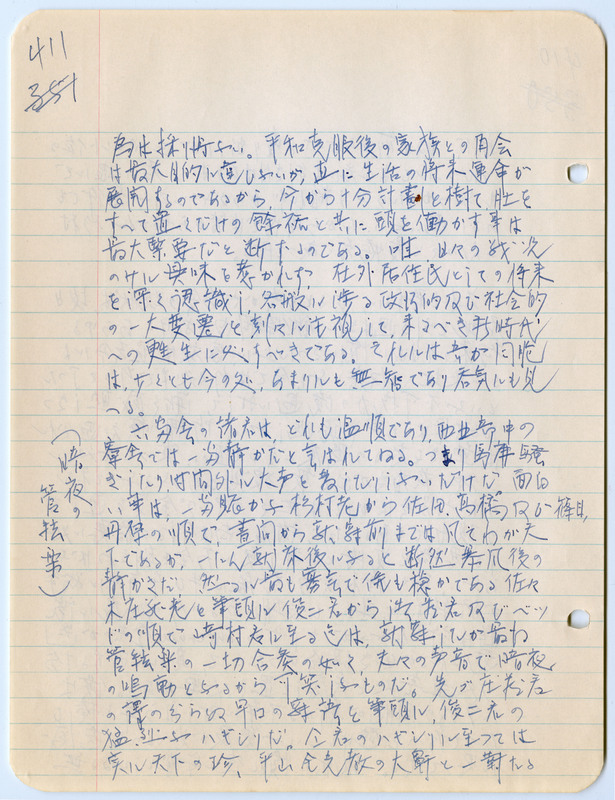 411
351
為は採り得ない。平和克服後の家族との再会
は最大目的に違いないが、並に生活の将来運命が
展開するのであるから、今から十分計劃を樹て、肚を
すへて置くだけの餘裕と共に頭を働かす事は
最大緊要だと断ずるのである。唯 日々の戦況
のみに興味を奪かれず、在外居住民としての将来
を深く認識し、各般に渉る政治的及び社会的
の一大変遷を刻々に注視して、来るべき新時代
への甦生に処すべきである。それには吾が同胞
は、少くとも今の処、あまりにも無智であり呑気にも見
へる。
(暗夜の管絃楽)
六労舎の諸君は、どれも温順であり、
舎では一番静かだと言はれてゐる。つまり馬鹿騒
ぎしたり時間外に大声を発したりしないだけだ 面白
い事は、一番賑かな杉村老から佐田、高橋及び篠目、
丹穫の順で、昼間から就寝前まではわが天
下であるが、一たん就床後になると断然暴風後の
静かさだ。然るに最も で も穏かである佐々
木 老を筆頭に俊二君から 君及びベッ
ドの順で崎村君に至る迄は、就寝したが最后
管絃楽の一切合奏の如く、夫々の声音で暗夜
の鳴動となるから可笑しなものだ。先づ 君
の譯のぞらぬ早口の寝語を筆頭に、俊二君の
猛烈なハギシリだ。 君のハギシリに至つては
実に天下の珍、平山 の大鼾と一対たる